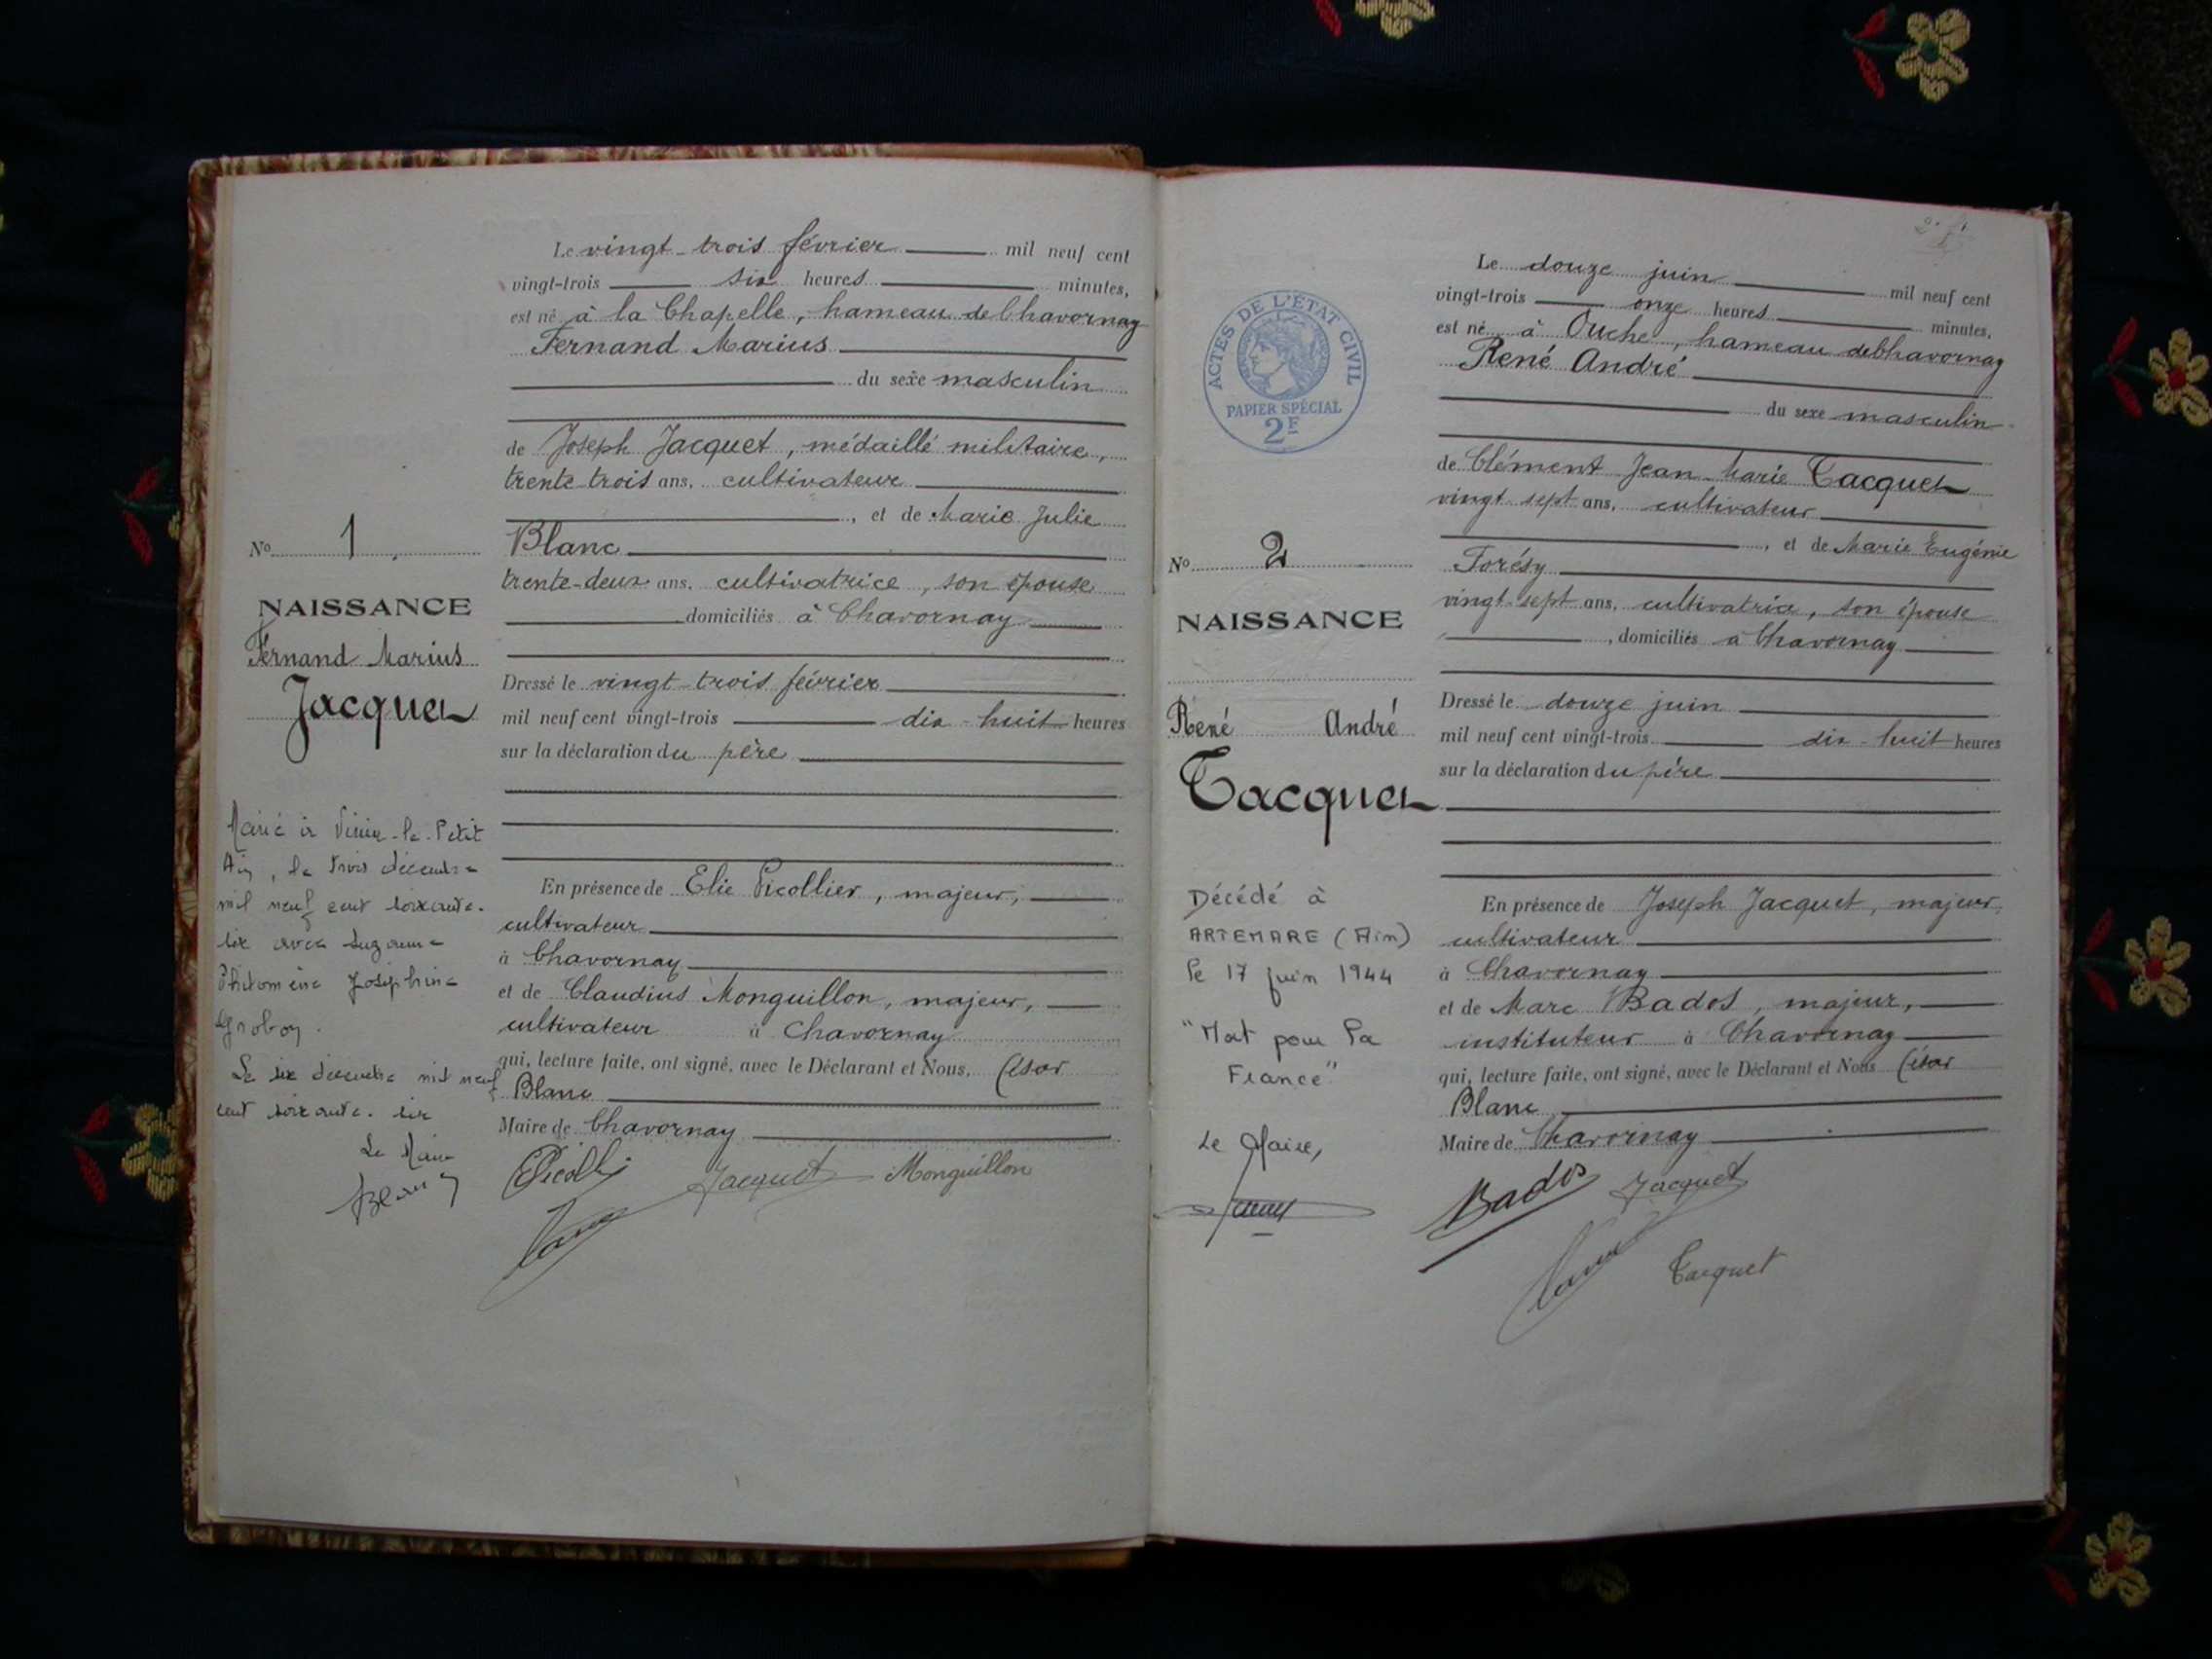 Le vingt-trois février mil neuf cent
vingt-trois six heures minutes,
est né à la Chapelle, hameau de Chavornay
Fernand Marius
du sexe masculin
de Joseph Jacquet, médaillé militaire,
trente-trois ans, cultivateur
, et de Marie Julie
Blanc
trente-deux ans, cultivatrice, son épouse
domiciliés à Chavornay
Dressé le vingt-trois février
mil neuf cent vingt-trois dix-huit heures
sur la déclaration du père
En présence de Elie Picollier, majeur,
cultivateur
à Chavornay
et de Claudius Monguillon, majeur,
cultivateur à Chavornay
qui, lecture faite, ont signé, avec le Déclarant et Nous, César
Blanc
Maire de Chavornay
Jacquet Monguillon
No 1
NAISSANCE
Fernand Marius
Jacquet
Marié à Virieu-le-Petit
Ain, le trois décembre
mil neuf cent soixante-
six avec Suzanne
Philomène Joséphine
Le six décembre mil neuf
cent soixante-six
Le Maire
2
ACTES DE L'ÉTAT CIVIL
PAPIER SPÉCIAL
2F
No 2
NAISSANCE
René André
Tacquet
Décédé à
ARTEMARE (Ain)
le 17 juin 1944
"Mort pour la
France"
Le Maire,
Le douze juin mil neuf cent
vingt-trois onze heures minutes,
est né à Ouche, hameau de Chavornay
René André
du sexe masculin
de Clément Jean-Marie Tacquet
vingt-sept ans, cultivateur
, et de Marie Eugénie
Forésy
vingt-sept ans, cultivatrice, son épouse
, domiciliés à Chavornay
Dressé le douze juin
mil neuf cent vingt-trois dix-huit heures
sur la déclaration du père
En présence de Joseph Jacquet, majeur,
cultivateur
à Chavornay
et de Marc Bados, majeur,
instituteur à Chavornay
qui, lecture faite, ont signé, avec le Déclarant et Nous César
Blanc
Maire de Chavornay
Bados Jacquet
Tacquet